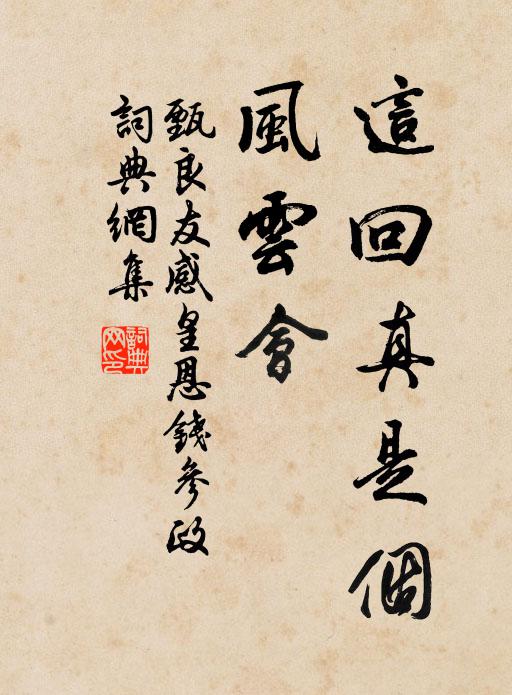 這回真是個
風雲會
甄良友感皇恩錢參政
詞典網集
詞典網印